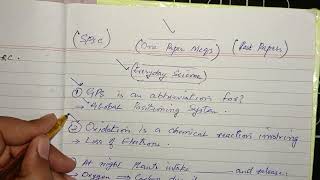 (SPSC) (One Paper Mcqs) (Past Papers)
(Everyday Science)
RC.
① GPS is an abbreviation for?
→ Global Positioning System.
② Oxidation is a chemical reaction involving
→ Loss of Electrons.
At night Plants intake ______ and release
→ Oxygen